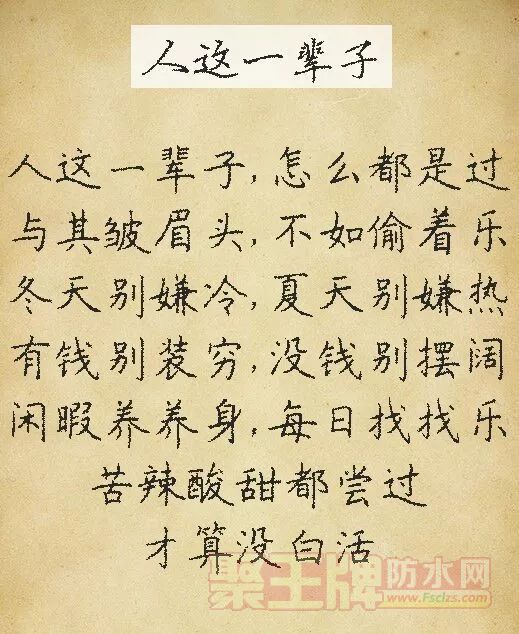 人这一辈子
人这一辈子,怎么都是过
与其皱眉头,不如偷着乐
冬天别嫌冷,夏天别嫌热
有钱别装穷,没钱别摆阔
闲暇养养身,每日找找乐
苦辣酸甜都尝过
才算没白活
聚王牌防水网
www.Fsclzs.com